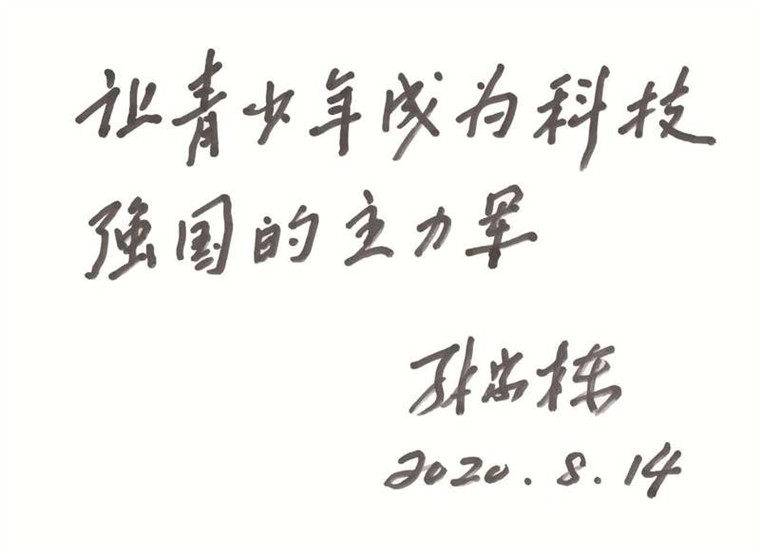 让青少年成为科技
强国的主力军
孙家栋
2020.8.14